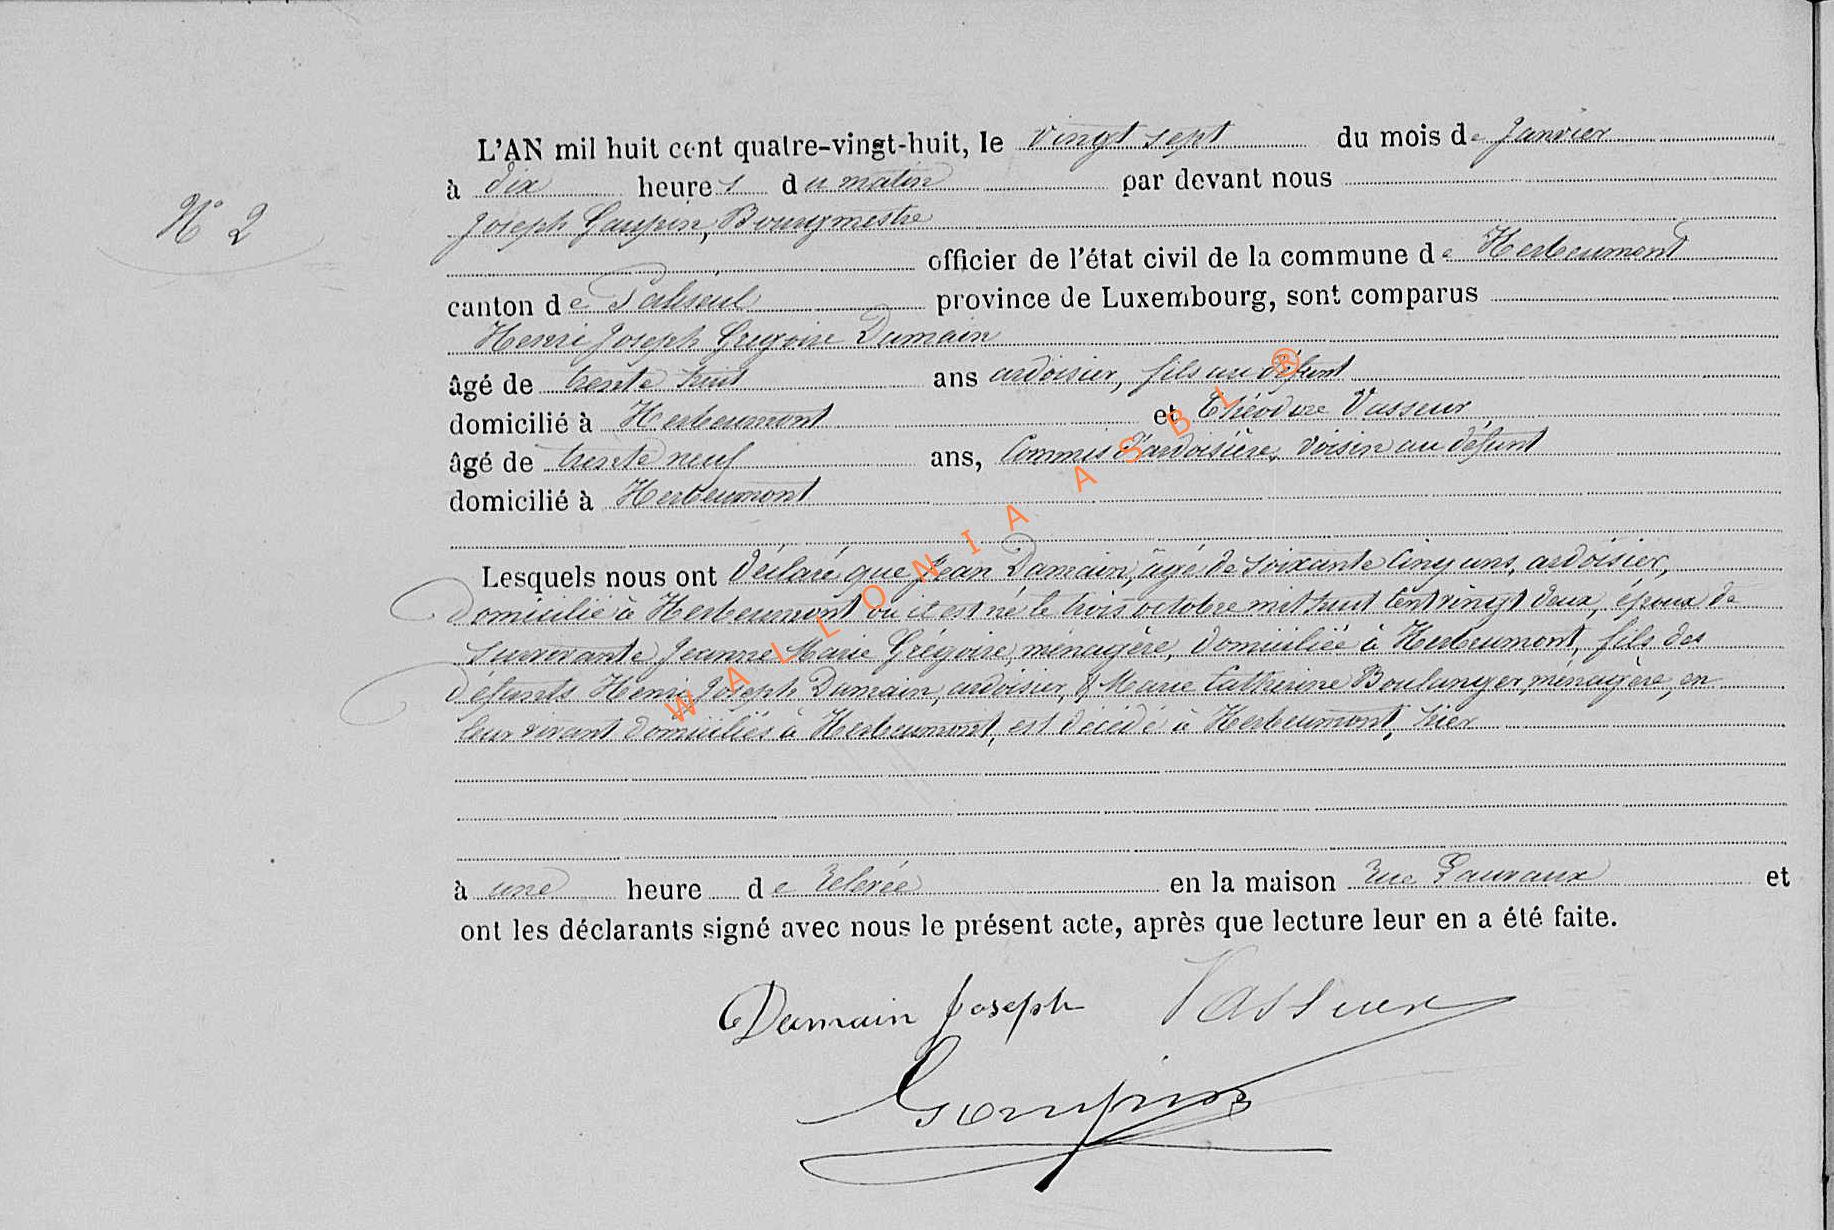 N° 2
L'AN mil huit cent quatre-vingt-huit, le vingt sept du mois de Janvier
à dix heures du matin par devant nous
Joseph Gaupin, Bourgmestre
officier de l'état civil de la commune de Herbeumont
canton de Paliseul province de Luxembourg, sont comparus
Henri Joseph Gregoire Damain
âgé de trente huit ans ardoisier, fils au défunt
domicilié à Herbeumont et Théodore Vasseur
âgé de trente neuf ans, Commis d'ardoisière, voisin au défunt
domicilié à Herbeumont
Lesquels nous ont déclaré que Jean Damain, âgé de soixante cinq ans, ardoisier,
domicilié à Herbeumont où il est né le trois octobre mil huit cent vingt deux, époux de
survivante Jeanne Marie Grégoire, ménagère, domiciliée à Herbeumont, fils des
défunts Henri Joseph Damain, ardoisier, & Marie Catherine Boulanger, ménagère, en
leur vivant domiciliés à Herbeumont, est décédé à Herbeumont, hier
à une heure de relevée en la maison rue et
ont les déclarants signé avec nous le présent acte, après que lecture leur en a été faite.
Damain Joseph Vasseur
Gaupin
WALLONIA ASBL ®